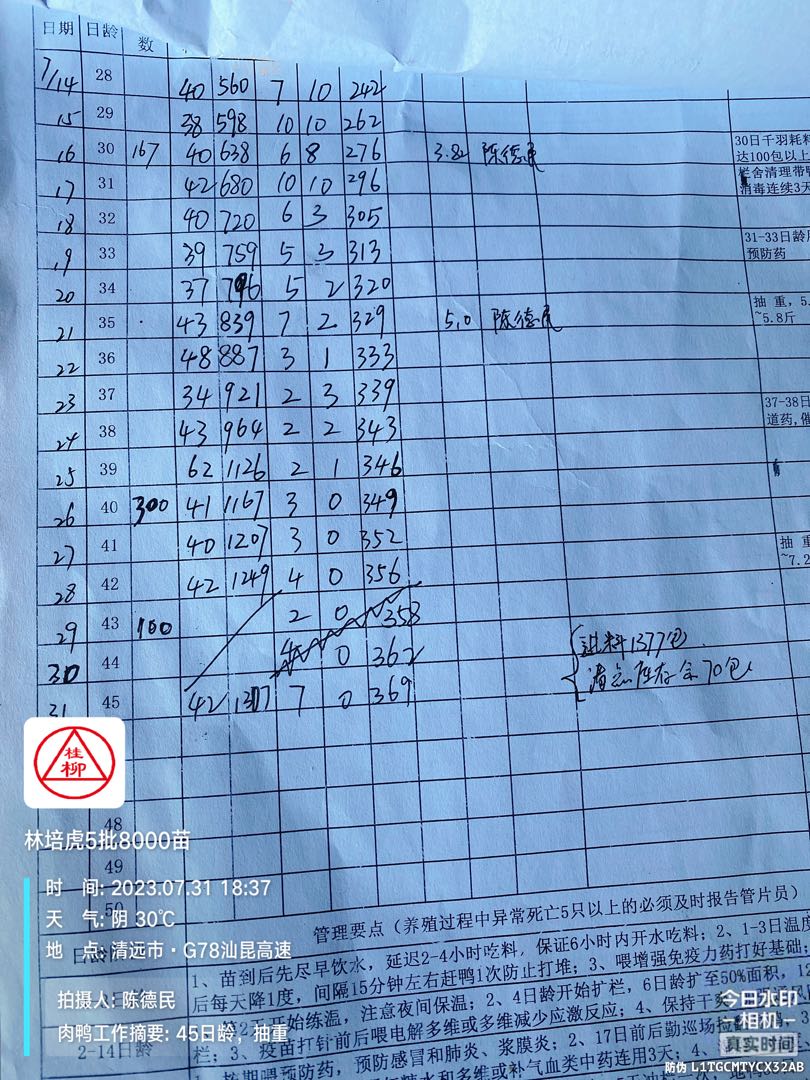 日期 日龄 数
7/14 28 40 560 7 10 242
15 29 38 598 10 10 262
16 30 167 40 638 6 8 276 3.82 陈德民 30日千羽耗料
达100包以上
17 31 42 680 10 10 296 栏舍清理带鸭
消毒连续3天
18 32 40 720 6 3 305
19 33 39 759 5 3 313 31-33日龄
预防药
20 34 37 796 5 2 320
21 35 43 839 7 2 329 5.0 陈德民 抽重,5.
~5.8斤
22 36 48 887 3 1 333
23 37 34 921 2 3 339
24 38 43 964 2 2 343 37-38日
道药,催
25 39 62 1126 2 1 346
26 40 300 41 1167 3 0 349
27 41 40 1207 3 0 352 抽重
~7.2
28 42 42 1249 4 0 356
29 43 100 2 0 358
30 44 4 0 362 料1377包
31 45 42 1317 7 0 369 库存余70包
桂柳
48
林培虎5批8000苗
49
50
时 间: 2023.07.31 18:37
天 气: 阴 30℃
地 点: 清远市·G78汕昆高速
拍摄人: 陈德民
肉鸭工作摘要: 45日龄,抽重
管理要点(养殖过程中异常死亡5只以上的必须及时报告管片员)
日龄
1、苗到后先尽早饮水,延迟2-4小时吃料,保证6小时内开水吃料;2、1-3日温度
后每天降1度,间隔15分钟左右赶鸭1次防止打堆;3、喂增强免疫力药打好基础;
开始练温,注意夜间保温;2、4日龄开始扩栏,6日龄扩至50%面积,12
栏;3、疫苗打针前后喂电解多维或多维减少应激反应;4、保持干爽
2-14日龄
预防药,预防感冒和肺炎、浆膜炎;2、17日前后勤巡场
糖水和多维或补气血类中药连用3天;4、
今日水印
相机
真实时间
防伪 L1TGCMTYCX32AB